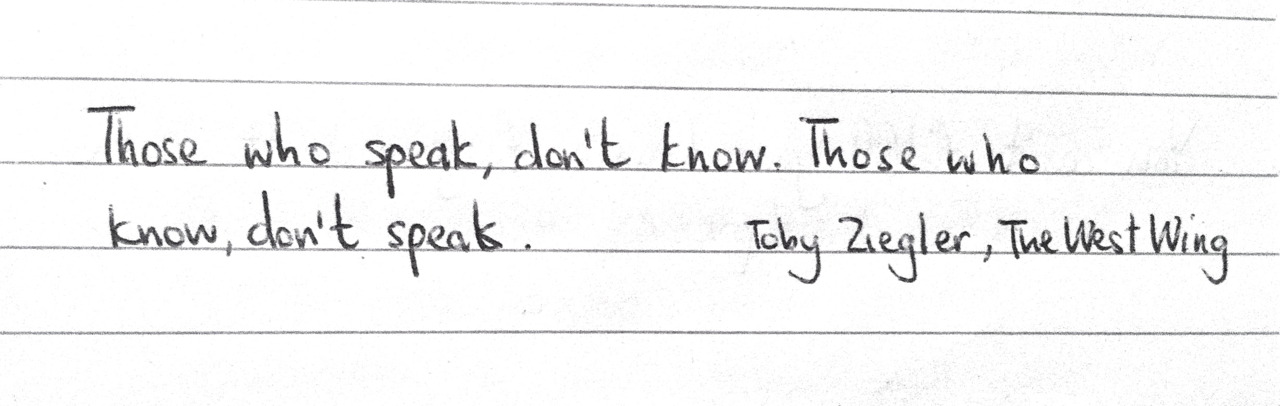 Those who speak, don't know. Those who
know, don't speak. Toby Ziegler, The West Wing